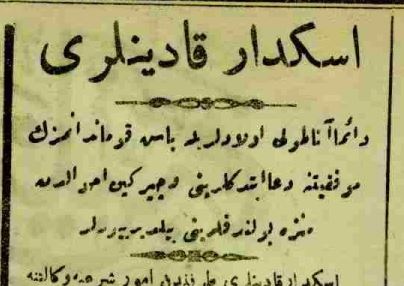 اسكدار قادینلری
دائما آناطولی اولادلریله باش قوماندانمزك
موفقیتنه دعا ایتدكلرینی و چیركین احوالدن
منزه بولندقلرینی بیلدیریورلر
اسكدار قادینلری طرفندن امور شرعیه وكالتنه